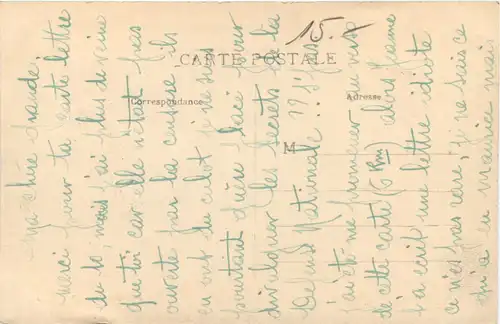 15.-
CARTE POSTALE
Correspondance
Adresse
M
Ma chère Grande,
merci pour ta carte lettre
du 10, mais j'ai plus de veine
que toi car elle n'était pas
ouverte par la censure ils
en ont du culot je ne vois
pourtant guère
divulguer les secrets de la
Défense Nationale ??
J'ai été me promener au vis
de cette carte (5 Km) alors Jeanne
t'a écrit une lettre idiote
ce n'est pas rare, je ne sais ce
qu'il a en Maurice mais